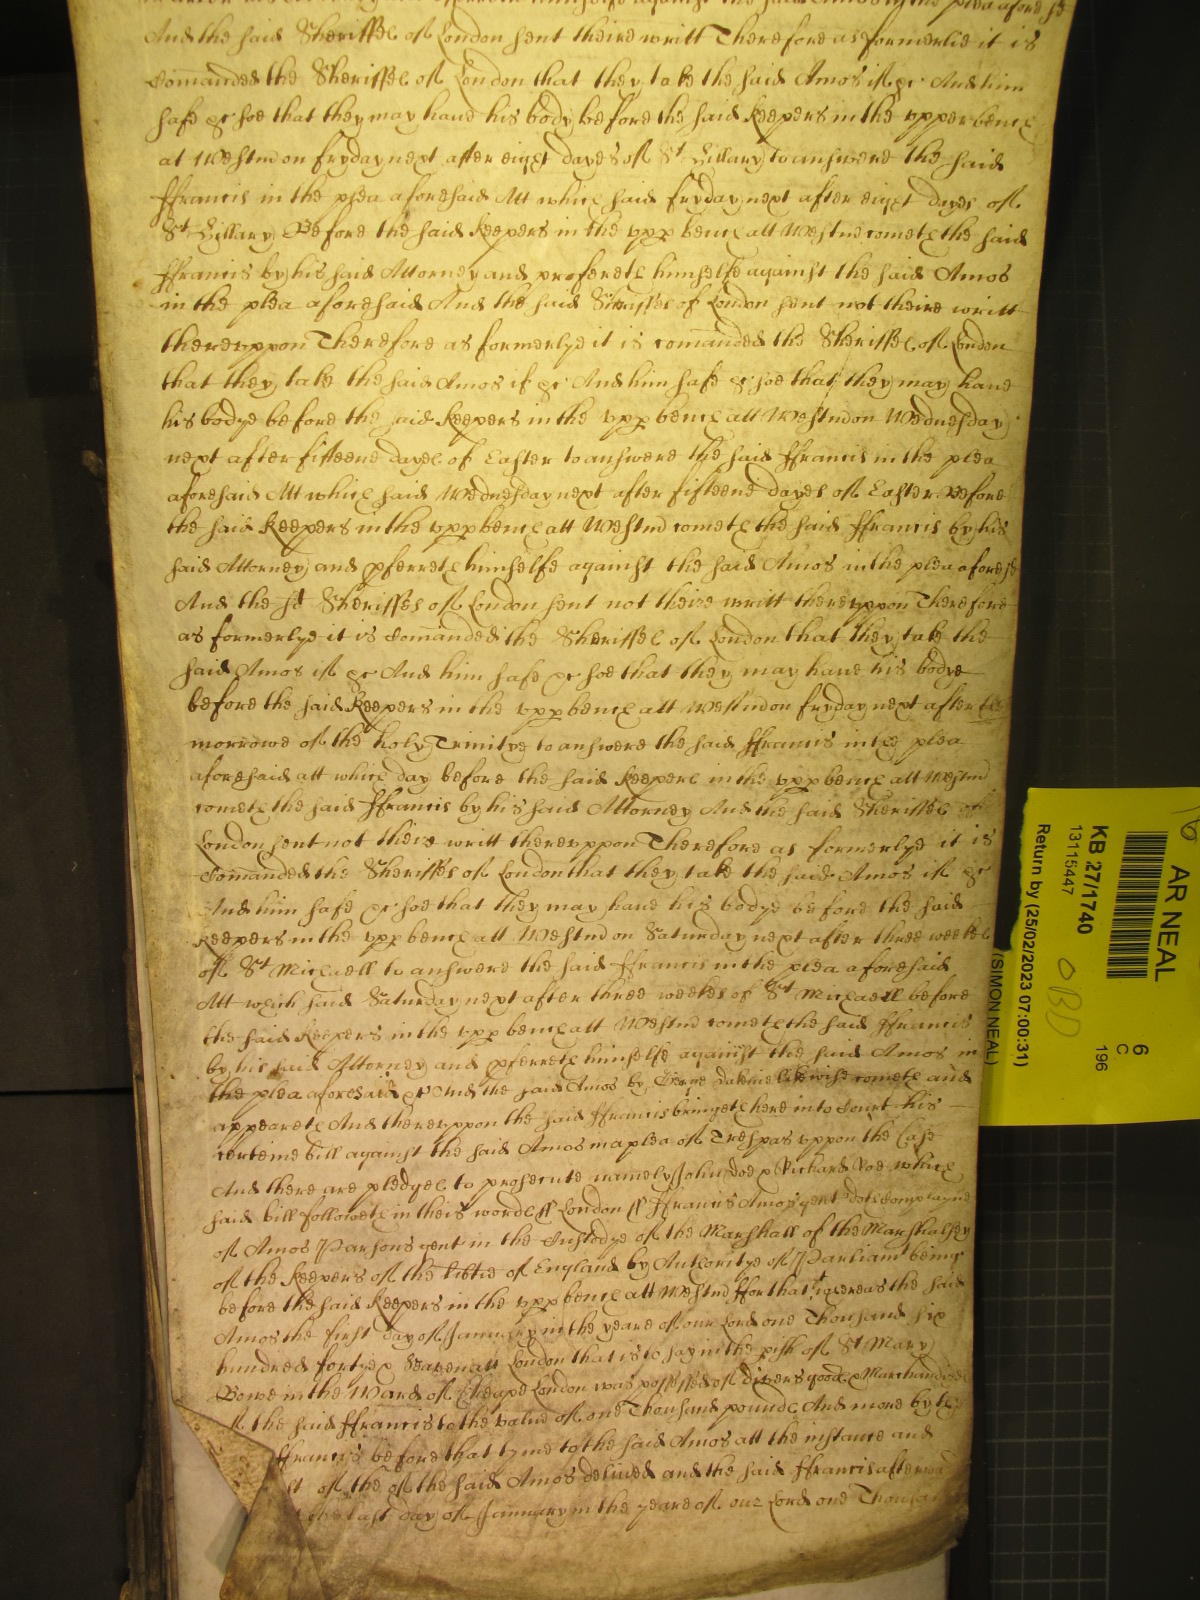 himselfe against the said Amos in the plea aforesd
And the said Sheriffes of London sent theire writt Therefore as formerlie it is
Comanded the Sheriffes of London that they take the said Amos if &c And him
safe &c soe that they may haue his body before the said Keepers in the vpper bench
at Westmr on fryday next after eight dayes of St Hillary to answere the said
ffrancis in the plea aforesaid Att which said fryday next after eight dayes of
St Hillary Before the said Keepers in the vpp bench att Westmr cometh the said
ffrancis by his said Attorney and profereth himselfe against the said Amos
in the plea aforesaid And the said Sheriffes of London sent not theire writt
therevppon Therefore as formerlye it is comanded the Sheriffes of London
that they take the said Amos if &c And him safe &c soe that they may haue
his bodye before the said Keepers in the vpp bench att Westmr on Wednesday
next after fifteene dayes of Easter to answere the said ffrancis in the plea
aforesaid Att which said Wednesday next after fifteene dayes of Easter Before
the said Keepers in the vpp bench att Westmr cometh the said ffrancis by his
said Attorney and pferreth himselfe against the said Amos in the plea aforesd
And the sd Sheriffes of London sent not theire writt therevppon Therefore
as formerlye it is Comanded the Sheriffes of London that they take the
said Amos if &c And him safe &c soe that they may haue his bodye
before the said Keepers in the vpp bench att Westmr on fryday next after the
morrowe of the holy Trinitye to answere the said ffrancis in the plea
aforesaid att which day before the said Keepers in the vpp bench att Westmr
cometh the said ffrancis by his said Attorney And the said Sheriffes of
London sent not theire writt therevppon Therefore as formerlye it is
Comanded the Sheriffes of London that they take the said Amos if &c
And him safe &c soe that they may haue his bodye before the said
Keepers in the vpp bench att Westmr on Saturday next after three weekes
of St Michaell to answere the said ffrancis in the plea aforesaid
Att which said Saturday next after three weekes of St Michaell before
the said Keepers in the vpp bench att Westmr cometh the said ffrancis
by his said Attorney and pferreth himselfe against the said Amos in
the plea aforesaid &c And the said Amos by George likewise cometh and
appeareth And therevppon the said ffrancis bringeth here into Court his
certeine bill against the said Amos in a plea of Trespas vppon the Case
And there are pledges to prosecute namely John Doe & Richard Roe which
said bill followeth in theis wordes ss London ss ffrancis Amos gent doth Complayne
of Amos Parsons gent in the Custodye of the Marshall of the Marshalsey
of the Keepers of the libtie of England by Authoritye of Parliamt being
before the said Keepers in the vpp bench att Westmr ffor that whereas the said
Amos the first day of January in the yeare of our Lord one Thousand six
hundred fortye & Seaven att London that is to say in the pish of St Mary
Bowe in the Ward of Cheape London was possessed of divers goods & Marchandizes
of the said ffrancis to the value of one Thousand pounds And more by the
ffrancis before that tyme to the said Amos att the instance and
of the of the said Amos deliued and the said ffrancis afterward
the last day of January in the yeare of our Lord one Thousand
AR NEAL
6
C
196
KB 27/1740
13115447
OBD
Return by (25/02/2023 07:00:31)
(SIMON NEAL)